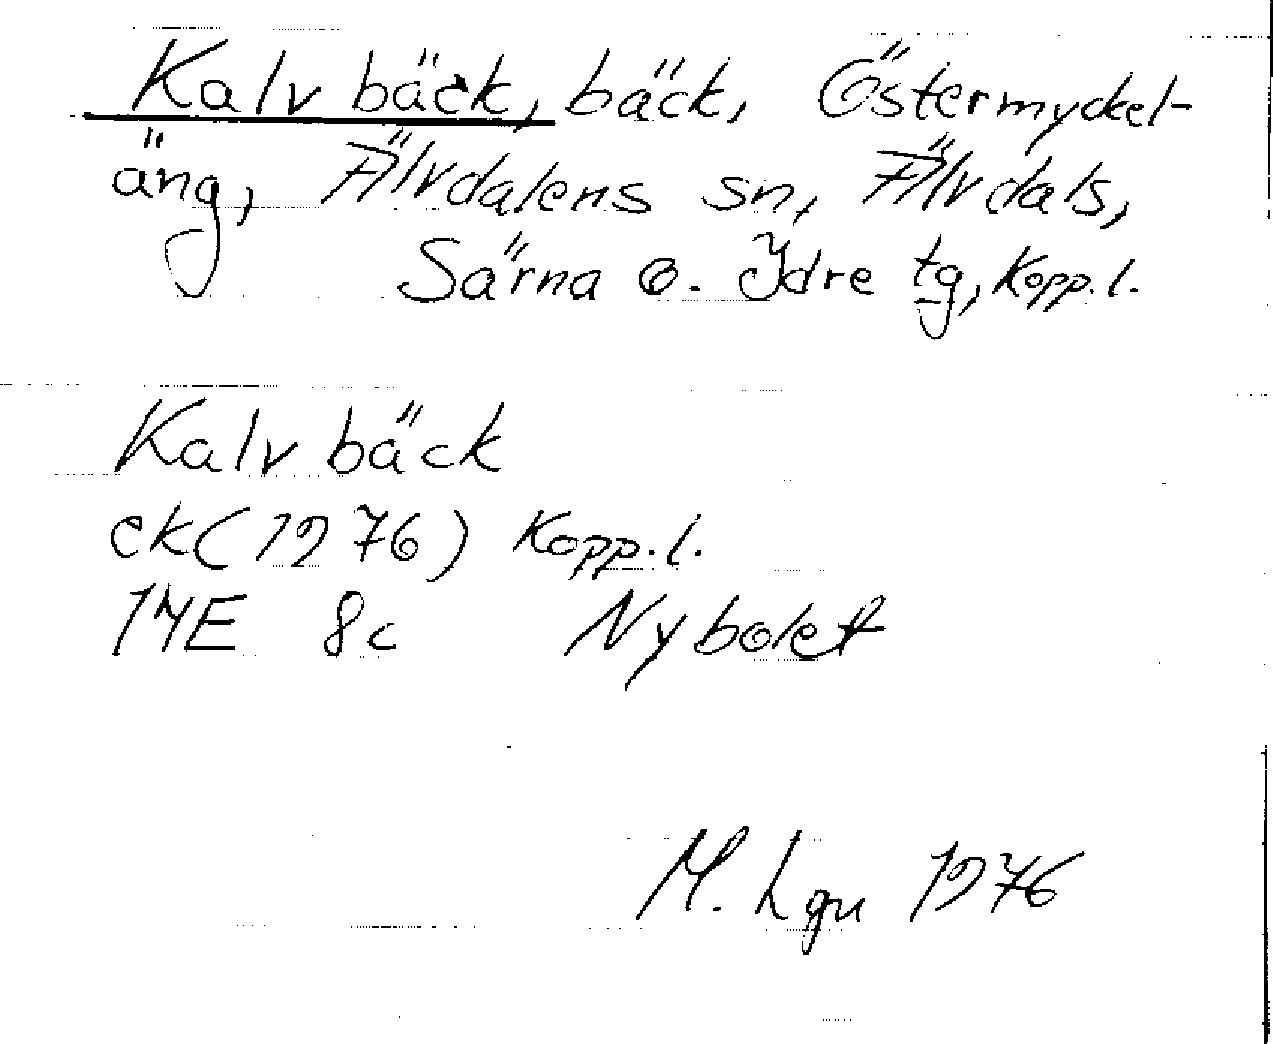 Kalv bäck, bäck, Östermyckel-
äng, Älvdalens sn, Älvdals,
Särna o. Idre tg, Kopp. l.
Kalv bäck
ek (1976) Kopp. l.
14E 8c Nybolet
M. Lgn 1976